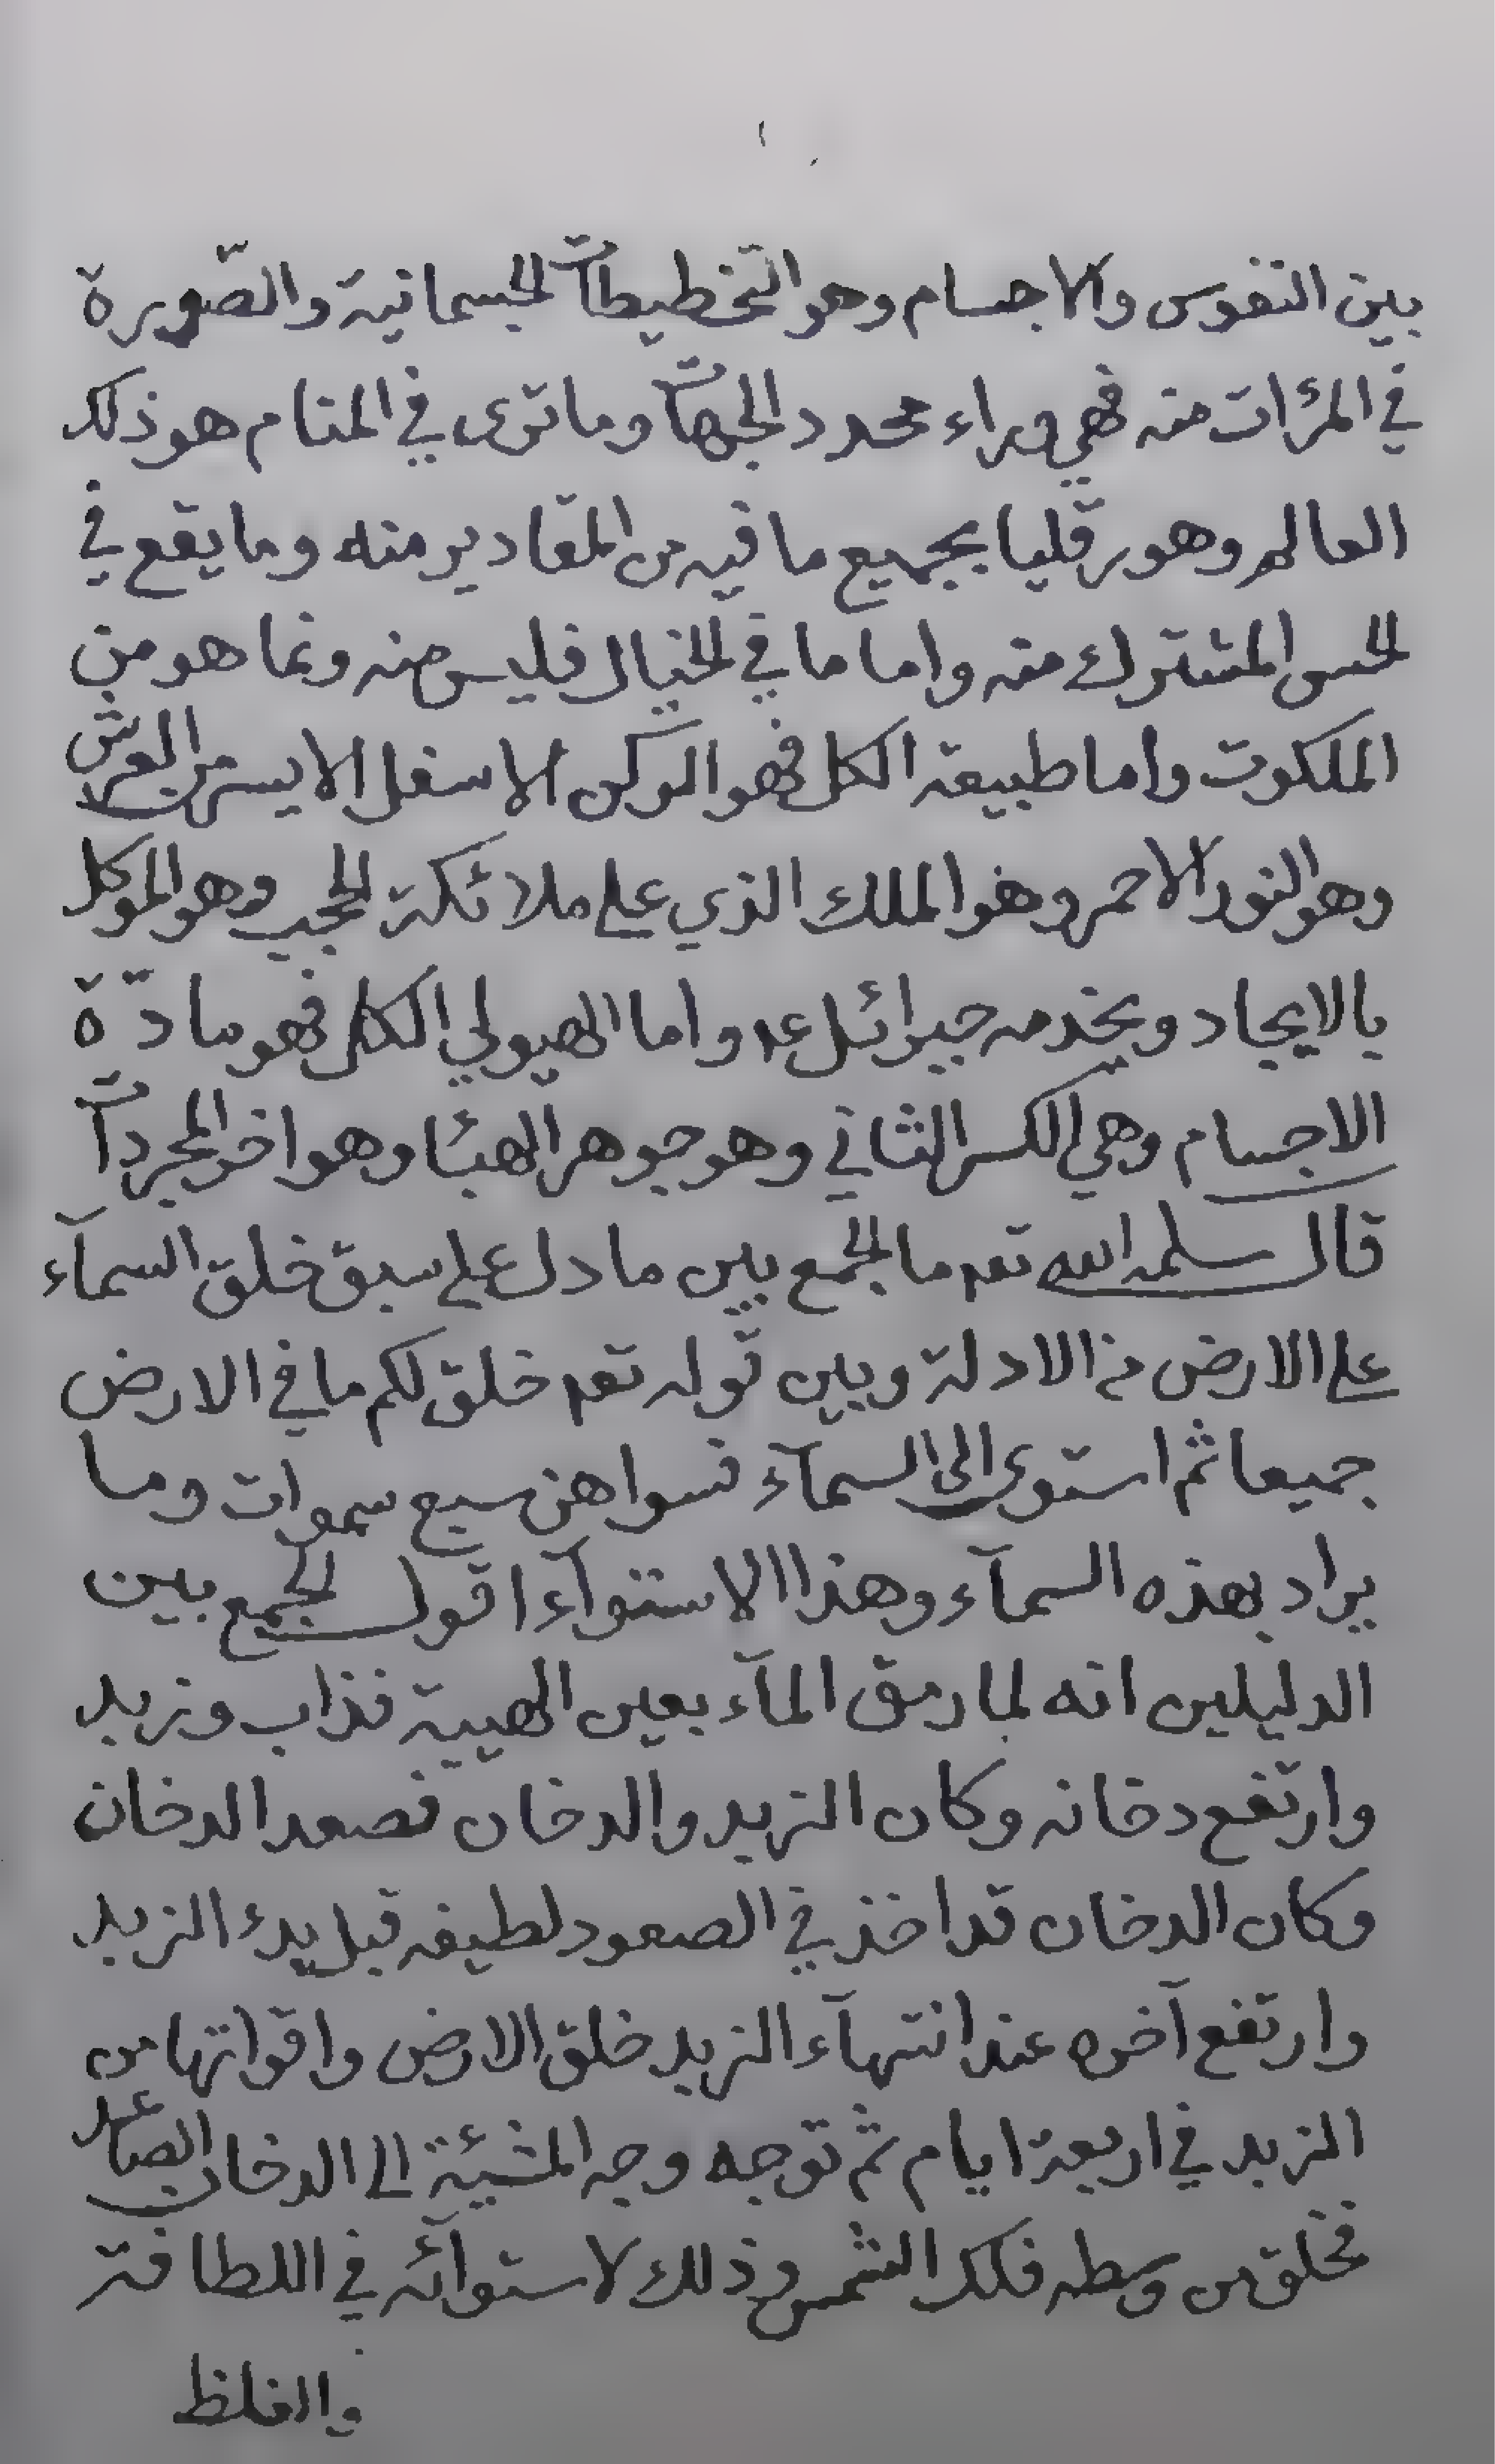 بين النفوس والاجسام وهو التخطيطات الجسمانية والصّورة
في المرٔات منه فهي وراء محدد الجهات وما ترى في المنام هو ذلك
العالم وهورقليا بجميع ما فيه من المقادير منه وما يقع في
الحس المشترك منه واما ما في الخيال فليس منه ونما هو من
الملكوت واما طبيعة الكل فهو الركن الاسفل الايسر من العرش
وهو النور الاحمر وهو الملك الذي على ملائكة الحجب وهو الموكل
بالايجاد ويخدمه جبرائيل عه واما الهيولي الكل فهو مادّة
الاجسام وهي الكسر الثاني وهو جوهر الهبٔا وهو اخر المجردات
قال سلمه الله تعه ما الجمع بين ما دل على سبق خلق السمآء
على الارض من الادلة وبين قوله تعه خلق لكم ما في الارض
جميعا ثم استوى الى السمآء فسواهن سبع سموات وما
يراد بهذه السمآء وهذا الاستوآء اقول الجمع بين
الدليلين انه لما رمق المآء بعين الهيبة فذاب وزبد
وارتفع دخانه وكان الزبد والدخان فصعد الدخان
وكان الدخان قد اخذ في الصعود لطيفه قبل بدء الزبد
وارتفع آخره عند انتهآء الزبد خلق الارض واقواتها من
الزبد في اربعة ايام ثم توجه وجه المشئة الى الدخان الصاعد
فخلق من وسطه فلك الشمس وذلك لاستوآئه في اللطافة
والغلظ